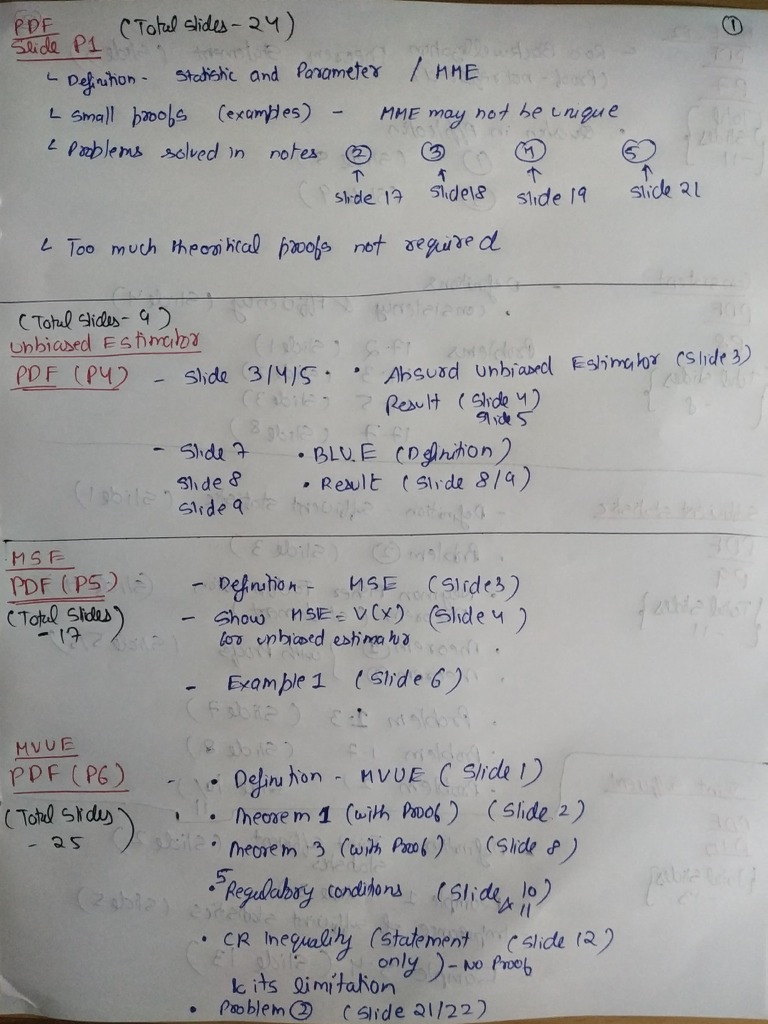 ①
PDF (Total slides - 24)
Slide P1
└ Definition - Statistic and Parameter / MME
└ Small proofs (examples) - MME may not be unique
└ Problems solved in notes ② ③ ④ ⑤
↑ ↑ ↑ ↑
slide 17 slide18 slide 19 slide 21
└ Too much theoritical proofs not required
(Total slides - 9)
Unbiased Estimator
PDF (P4) - Slide 3/4/5 • • Absurd Unbiased Estimator (Slide 3)
Result (Slide 4)
Slide 5
- Slide 7 • BLUE (Definition)
Slide 8 • Result (Slide 8/9)
Slide 9
MSE
PDF (P5) - Definition - MSE (Slide3)
(Total Slides) - Show MSE = V(X) (Slide 4)
- 17 for unbiased estimator
- Example 1 (Slide 6)
MVUE
PDF (P6) - • Definition - MVUE (Slide 1)
(Total Slides) • Theorem 1 (with Proof) (Slide 2)
- 25 • Theorem 3 (with Proof) (Slide 8)
• 5 Regulatory conditions (Slide 10)
& 11
• CR Inequality (Statement (Slide 12)
only) - No Proof
& its limitation
• Problem ② (Slide 21/22)